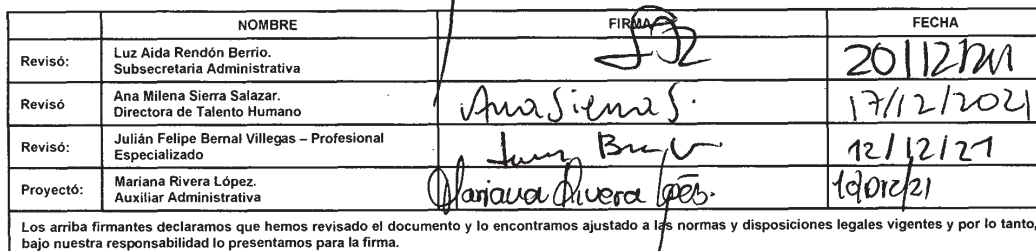 NOMBRE FIRMA FECHA
Revisó: Luz Aida Rendón Berrio.
Subsecretaria Administrativa
20/12/2021
Revisó Ana Milena Sierra Salazar.
Directora de Talento Humano
Ana Sierra S. 17/12/2021
Revisó: Julián Felipe Bernal Villegas – Profesional
Especializado
12/12/21
Proyectó: Mariana Rivera López.
Auxiliar Administrativa
Mariana Rivera López. 10/Dic/21
Los arriba firmantes declaramos que hemos revisado el documento y lo encontramos ajustado a las normas y disposiciones legales vigentes y por lo tanto,
bajo nuestra responsabilidad lo presentamos para la firma.